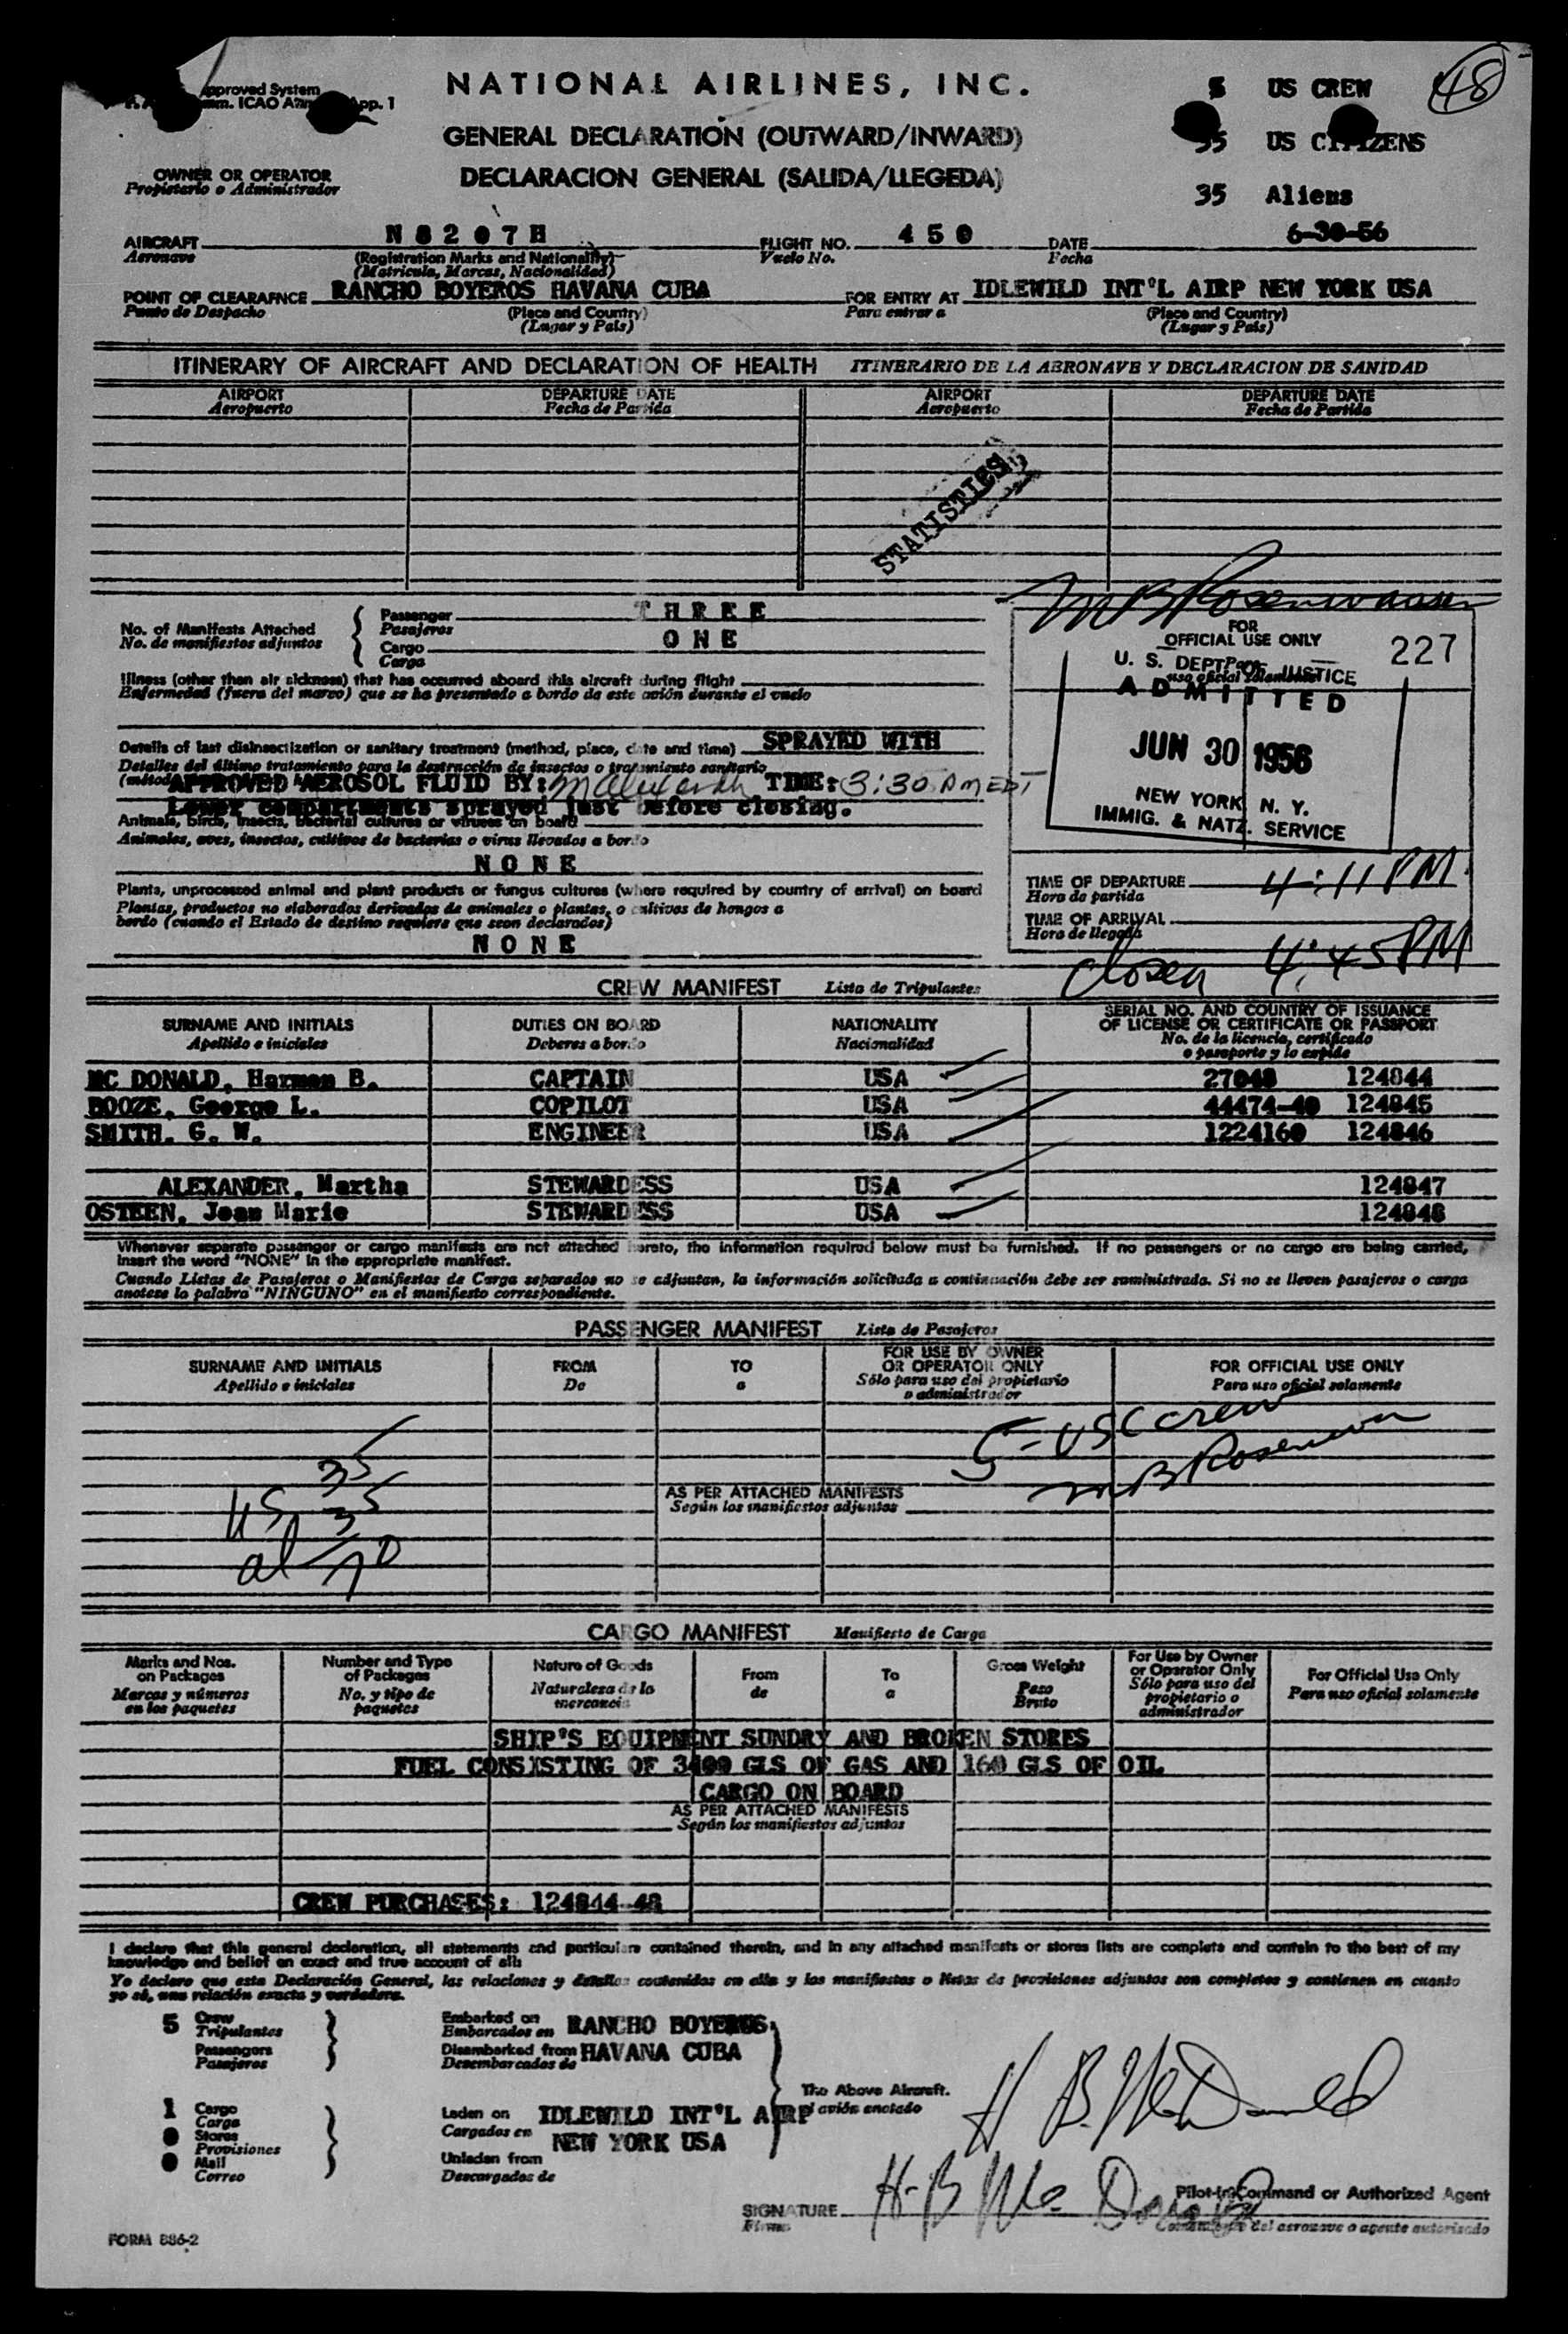 48
Approved System
ICAO App. 1
NATIONAL AIRLINES, INC.
GENERAL DECLARATION (OUTWARD/INWARD)
DECLARACION GENERAL (SALIDA/LLEGEDA)
5 US CREW
35 US CITIZENS
35 Aliens
OWNER OR OPERATOR
Propietario o Administrador
AIRCRAFT N 8 2 0 7 H FLIGHT NO. 4 5 0 DATE 6-30-56
Aeronave (Registration Marks and Nationality) Vuelo No. Fecha
(Matricula, Marcas, Nacionalidad)
POINT OF CLEARAFNCE RANCHO BOYEROS HAVANA CUBA FOR ENTRY AT IDLEWILD INT'L AIRP NEW YORK USA
Punto de Despacho (Place and Country) Para entrar a (Place and Country)
(Lugar y Pais) (Lugar y Pais)
ITINERARY OF AIRCRAFT AND DECLARATION OF HEALTH ITINERARIO DE LA AERONAVE Y DECLARACION DE SANIDAD
AIRPORT DEPARTURE DATE AIRPORT DEPARTURE DATE
Aeropuerto Fecha de Partida Aeropuerto Fecha de Partida
STATISTICS
No. of Manifests Attached Passenger T H R E E
No. de manifiestos adjuntos Pasajeros
Cargo O N E
Carga
Illness (other than air sickness) that has occurred aboard this aircraft during flight
Enfermedad (fuera del mareo) que se ha presentado a bordo de este avión durante el vuelo
Details of last disinsectization or sanitary treatment (method, place, date and time) SPRAYED WITH
Detalles del último tratamiento para la destrucción de insectos o tratamiento sanitario
APPROVED AEROSOL FLUID BY: M Alexander TIME: 3:30 PM EDT
Lower compartments sprayed just before closing.
Animals, birds, insects, bacterial cultures or viruses on board
Animales, aves, insectos, cultivos de bacterias o virus llevados a bordo
N O N E
Plants, unprocessed animal and plant products or fungus cultures (where required by country of arrival) on board
Plantas, productos no elaborados derivados de animales o plantas, o cultivos de hongos a
bordo (cuando el Estado de destino requiere que sean declarados)
N O N E
M B Rosenwasser
FOR
OFFICIAL USE ONLY
227
U. S. DEPT. OF JUSTICE
ADMITTED
JUN 30 1956
NEW YORK, N. Y.
IMMIG. & NATZ. SERVICE
TIME OF DEPARTURE 4:11 PM
Hora de partida
TIME OF ARRIVAL
Hora de llegada
Closed 4:45 PM
CREW MANIFEST Lista de Tripulantes
SURNAME AND INITIALS DUTIES ON BOARD NATIONALITY SERIAL NO. AND COUNTRY OF ISSUANCE
OF LICENSE OR CERTIFICATE OR PASSPORT
Apellido e iniciales Deberes a bordo Nacionalidad No. de la licencia, certificado
o pasaporte y lo expide
MC DONALD, Harmon B. CAPTAIN USA 27048 124844
BOOZE, George L. COPILOT USA 44474-40 124845
SMITH, G. W. ENGINEER USA 1224160 124846
ALEXANDER, Martha STEWARDESS USA 124847
OSTEEN, Jean Marie STEWARDESS USA 124848
Whenever separate passenger or cargo manifests are not attached hereto, the information required below must be furnished. If no passengers or no cargo are being carried,
insert the word "NONE" in the appropriate manifest.
Cuando Listas de Pasajeros o Manifiestos de Carga separados no se adjuntan, la información solicitada a continuación debe ser suministrada. Si no se lleven pasajeros o carga
anotese la palabra "NINGUNO" en el manifiesto correspondiente.
PASSENGER MANIFEST Lista de Pasajeros
SURNAME AND INITIALS FROM TO FOR USE BY OWNER
OR OPERATOR ONLY FOR OFFICIAL USE ONLY
Apellido e iniciales De a Sólo para uso del propietario
o administrador Para uso oficial solamente
5-USC crew
M B Rosenwasser
35
US 35
al 70
AS PER ATTACHED MANIFESTS
Según los manifiestos adjuntos
CARGO MANIFEST Manifiesto de Carga
Marks and Nos.
on Packages
Marcas y números
en los paquetes
Number and Type
of Packages
No. y tipo de
paquetes
Nature of Goods
Naturaleza de la
mercancia
From
de
To
a
Gross Weight
Peso
Bruto
For Use by Owner
or Operator Only
Sólo para uso del
propietario o
administrador
For Official Use Only
Para uso oficial solamente
SHIP'S EQUIPMENT SUNDRY AND BROKEN STORES
FUEL CONSISTING OF 3400 GLS OF GAS AND 160 GLS OF OIL
CARGO ON BOARD
AS PER ATTACHED MANIFESTS
Según los manifiestos adjuntos
CREW PURCHASES: 124844-48
I declare that this general declaration, all statements and particulars contained therein, and in any attached manifests or stores lists are complete and contain to the best of my
knowledge and belief an exact and true account of all:
Yo declaro que esta Declaración General, las relaciones y detalles contenidos en ella y los manifiestos o listas de provisiones adjuntos son completos y contienen en cuanto
yo sé, una relación exacta y verdadera.
5 Crew
Tripulantes
Passengers
Pasajeros
Embarked on RANCHO BOYEROS
Embarcados en
Disembarked from HAVANA CUBA
Desembarcados de
The Above Aircraft.
avión anotado
1 Cargo
Carga
0 Stores
Provisiones
0 Mail
Correo
Laden on IDLEWILD INT'L AIRP
Cargados en NEW YORK USA
Unladen from
Descargados de
H B McDonald
SIGNATURE H-B McDonald
Firma
Pilot-in-Command or Authorized Agent
Comandante del aeronave o agente autorizado
FORM 886-2